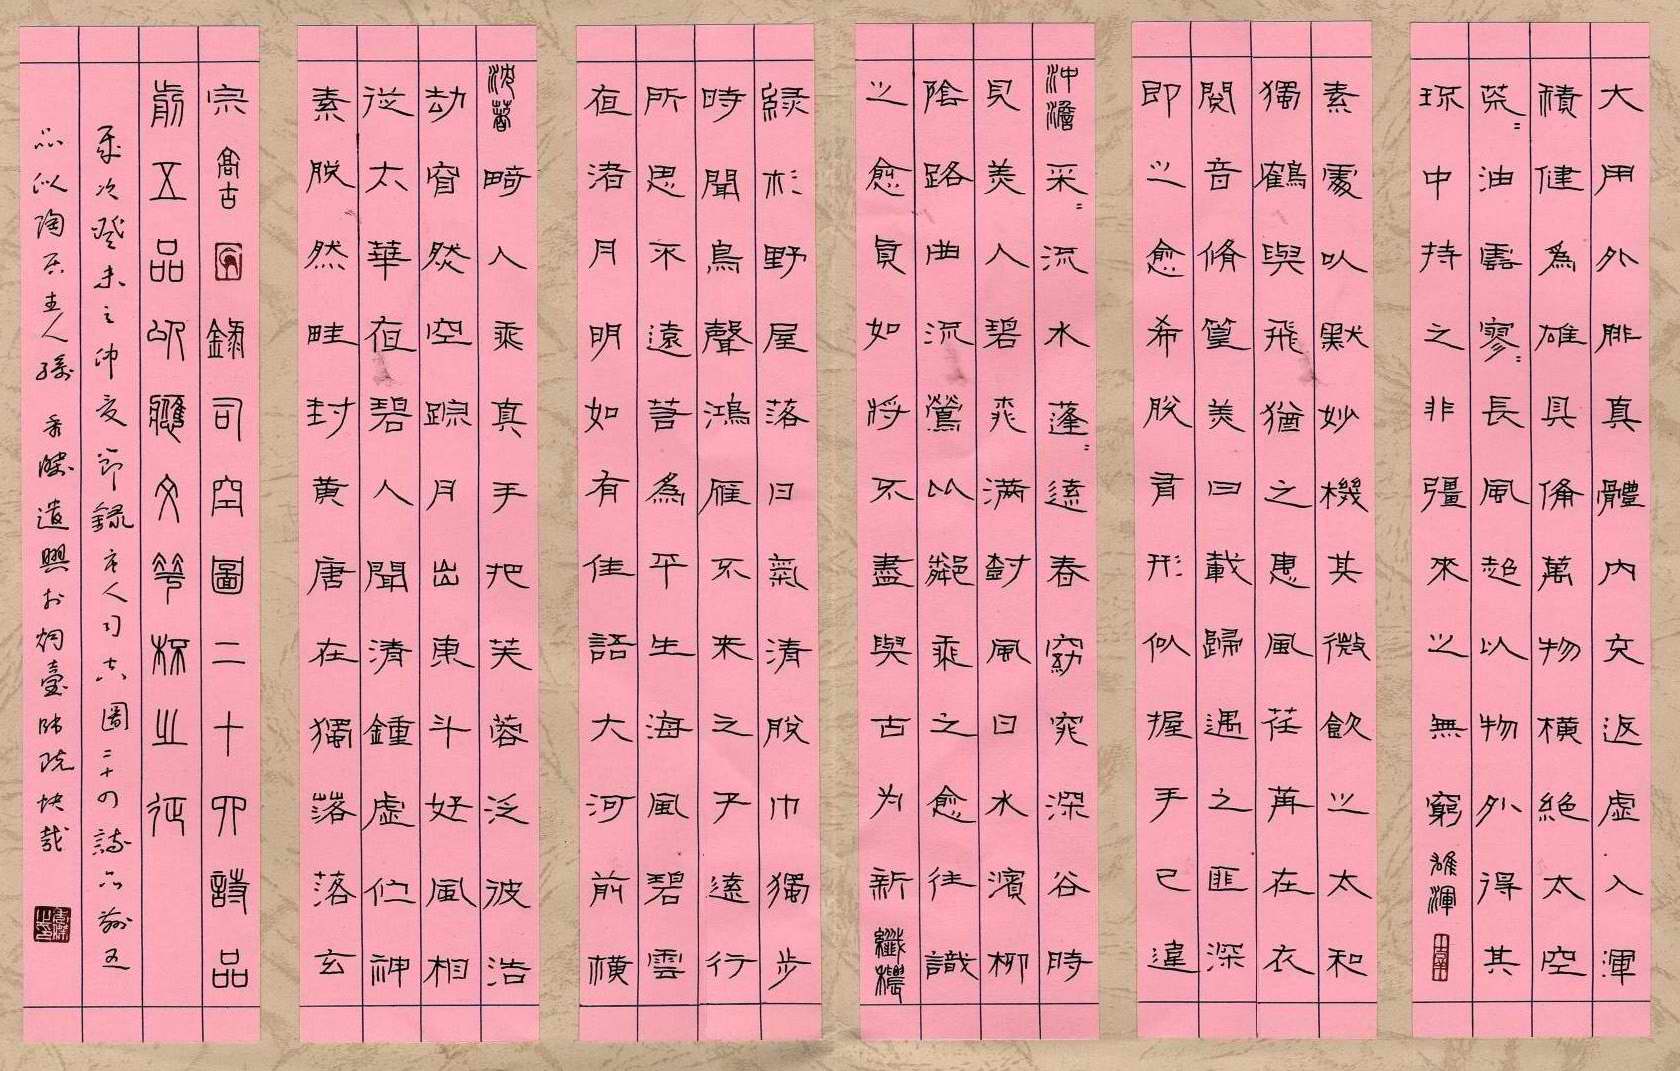 大用外腓真體內充返虛入渾
積健為雄具備萬物橫絕太空
荒〻油雲寥〻長風超以物外得其
環中持之非彊來之無窮 雄渾
素處以默妙機其微飲之太和
獨鶴與飛猶之惠風荏苒在衣
閱音脩篁美曰載歸遇之匪深
即之愈希脫有形似握手已違
沖澹 采〻流水蓬〻遠春窈窕深谷時
見美人碧桃滿樹風日水濱柳
陰路曲流鶯比鄰乘之愈往識
之愈真如將不盡與古為新 纖穠
綠杉野屋落日氣清脫巾獨步
時聞鳥聲鴻雁不來之子遠行
所思不遠若為平生海風碧雲
夜渚月明如有佳語大河前橫
沈著 畸人乘真手把芙蓉泛彼浩
劫窅然空蹤月出東斗好風相
從太華夜碧人聞清鐘虛佇神
素脫然畦封黃唐在獨落落玄
宗 高古 錄司空圖二十四詩品
前五品以應文華杯之征
歲次癸未之仲夏節錄唐人司空圖二十四詩品前五
品以陶